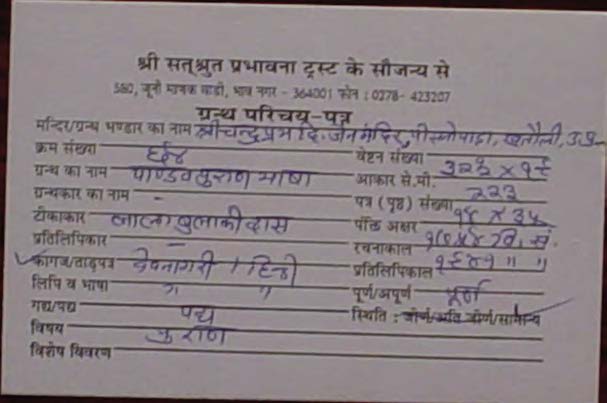 श्री सत्श्रुत प्रभावना ट्रस्ट के सौजन्य से
580, जूनी माणक वाडी, भाव नगर - 364001 फोन : 0278- 423207
ग्रन्थ परिचय-पत्र
मन्दिर/ग्रन्थ भण्डार का नाम श्री चन्द्रप्रभ दि. जैन मंदिर, खतौली, उ.प्र.
क्रम संख्या ६४ वेष्टन संख्या
ग्रन्थ का नाम पाण्डवपुराण भाषा आकार से.मी. × १९
ग्रन्थकार का नाम - पत्र (पृष्ठ) संख्या २२३
टीकाकार लाला बुलाकीदास पंक्ति अक्षर १५ × ३५
प्रतिलिपिकार - रचनाकाल वि. सं.
कागज/ताड़पत्र देवनागरी / हिन्दी प्रतिलिपिकाल १९४१ " "
लिपि व भाषा " " पूर्ण/अपूर्ण पूर्ण
गद्य/पद्य पद्य स्थिति : जीर्ण/अति जीर्ण/सामान्य
विषय पुराण
विशेष विवरण